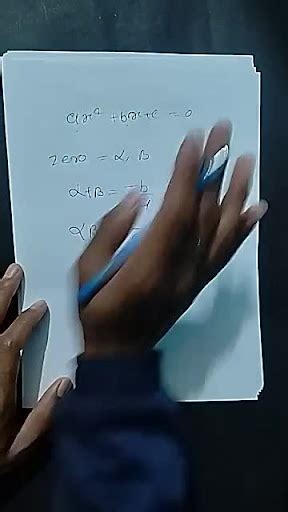 ax² + bx + c = 0
Zero = α, β
α+β = -b
αβ =